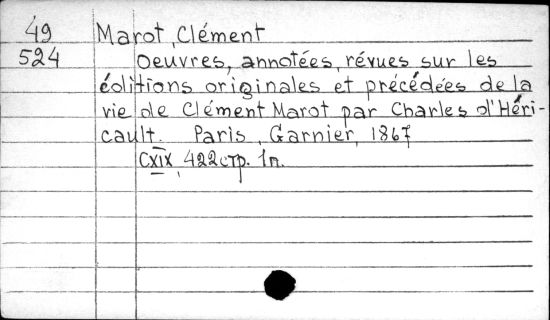 49 Marot, Clément
524 Oeuvres, annotées, révues sur les
éditions originales et précédées de la
vie de Clément Marot par Charles d'Héri-
cault. Paris, Garnier, 1867
CXIX, 422стр. 1л.